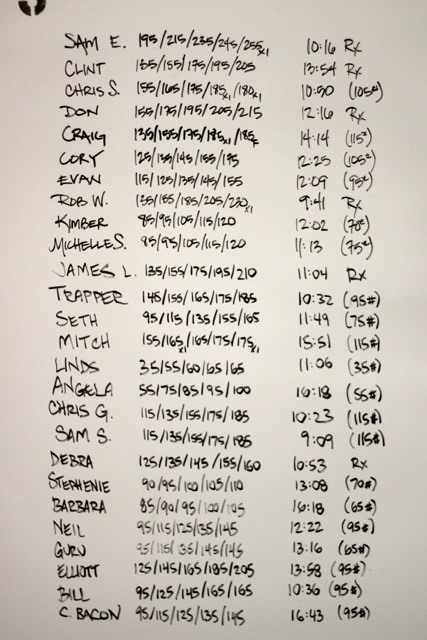 SAM E. 195/215/235/245/255x1 10:16 Rx
CLINT 135/155/175/195/205 13:54 Rx
CHRIS S. 155/165/175/185x1/180x1 10:50 (105#)
DON 155/175/195/205/215 12:16 Rx
CRAIG 135/155/175/185x1/185 14:14 (115#)
CORY 125/135/145/155/175 12:25 (105#)
EVAN 115/125/135/145/155 12:09 (95#)
ROB W. 135/155/185/205/230x1 9:41 Rx
KIMBER 85/95/105/115/120 12:02 (70#)
MICHELLE S. 85/95/105/115/120 11:13 (75#)
JAMES L. 135/155/175/195/210 11:04 Rx
TRAPPER 145/155/165/175/185 10:32 (95#)
SETH 95/115/135/155/165 11:49 (75#)
MITCH 155/165x1/165/175/175x1 15:51 (115#)
LINDS 35/55/60/65/65 11:06 (35#)
ANGELA 55/75/85/95/100 16:18 (55#)
CHRIS G. 115/135/155/175/185 10:23 (115#)
SAM S. 115/135/155/175/185 9:09 (115#)
DEBRA 125/135/145/155/160 10:53 Rx
STEPHENIE 90/95/100/105/110 13:08 (70#)
BARBARA 85/90/95/100/105 16:18 (65#)
NEIL 95/115/125/135/145 12:22 (95#)
GURU 95/115/135/145/145 13:16 (65#)
ELLIOTT 125/145/165/185/205 13:58 (95#)
BILL 95/125/145/165/165 10:36 (95#)
C. BACON 95/115/125/135/145 16:43 (95#)